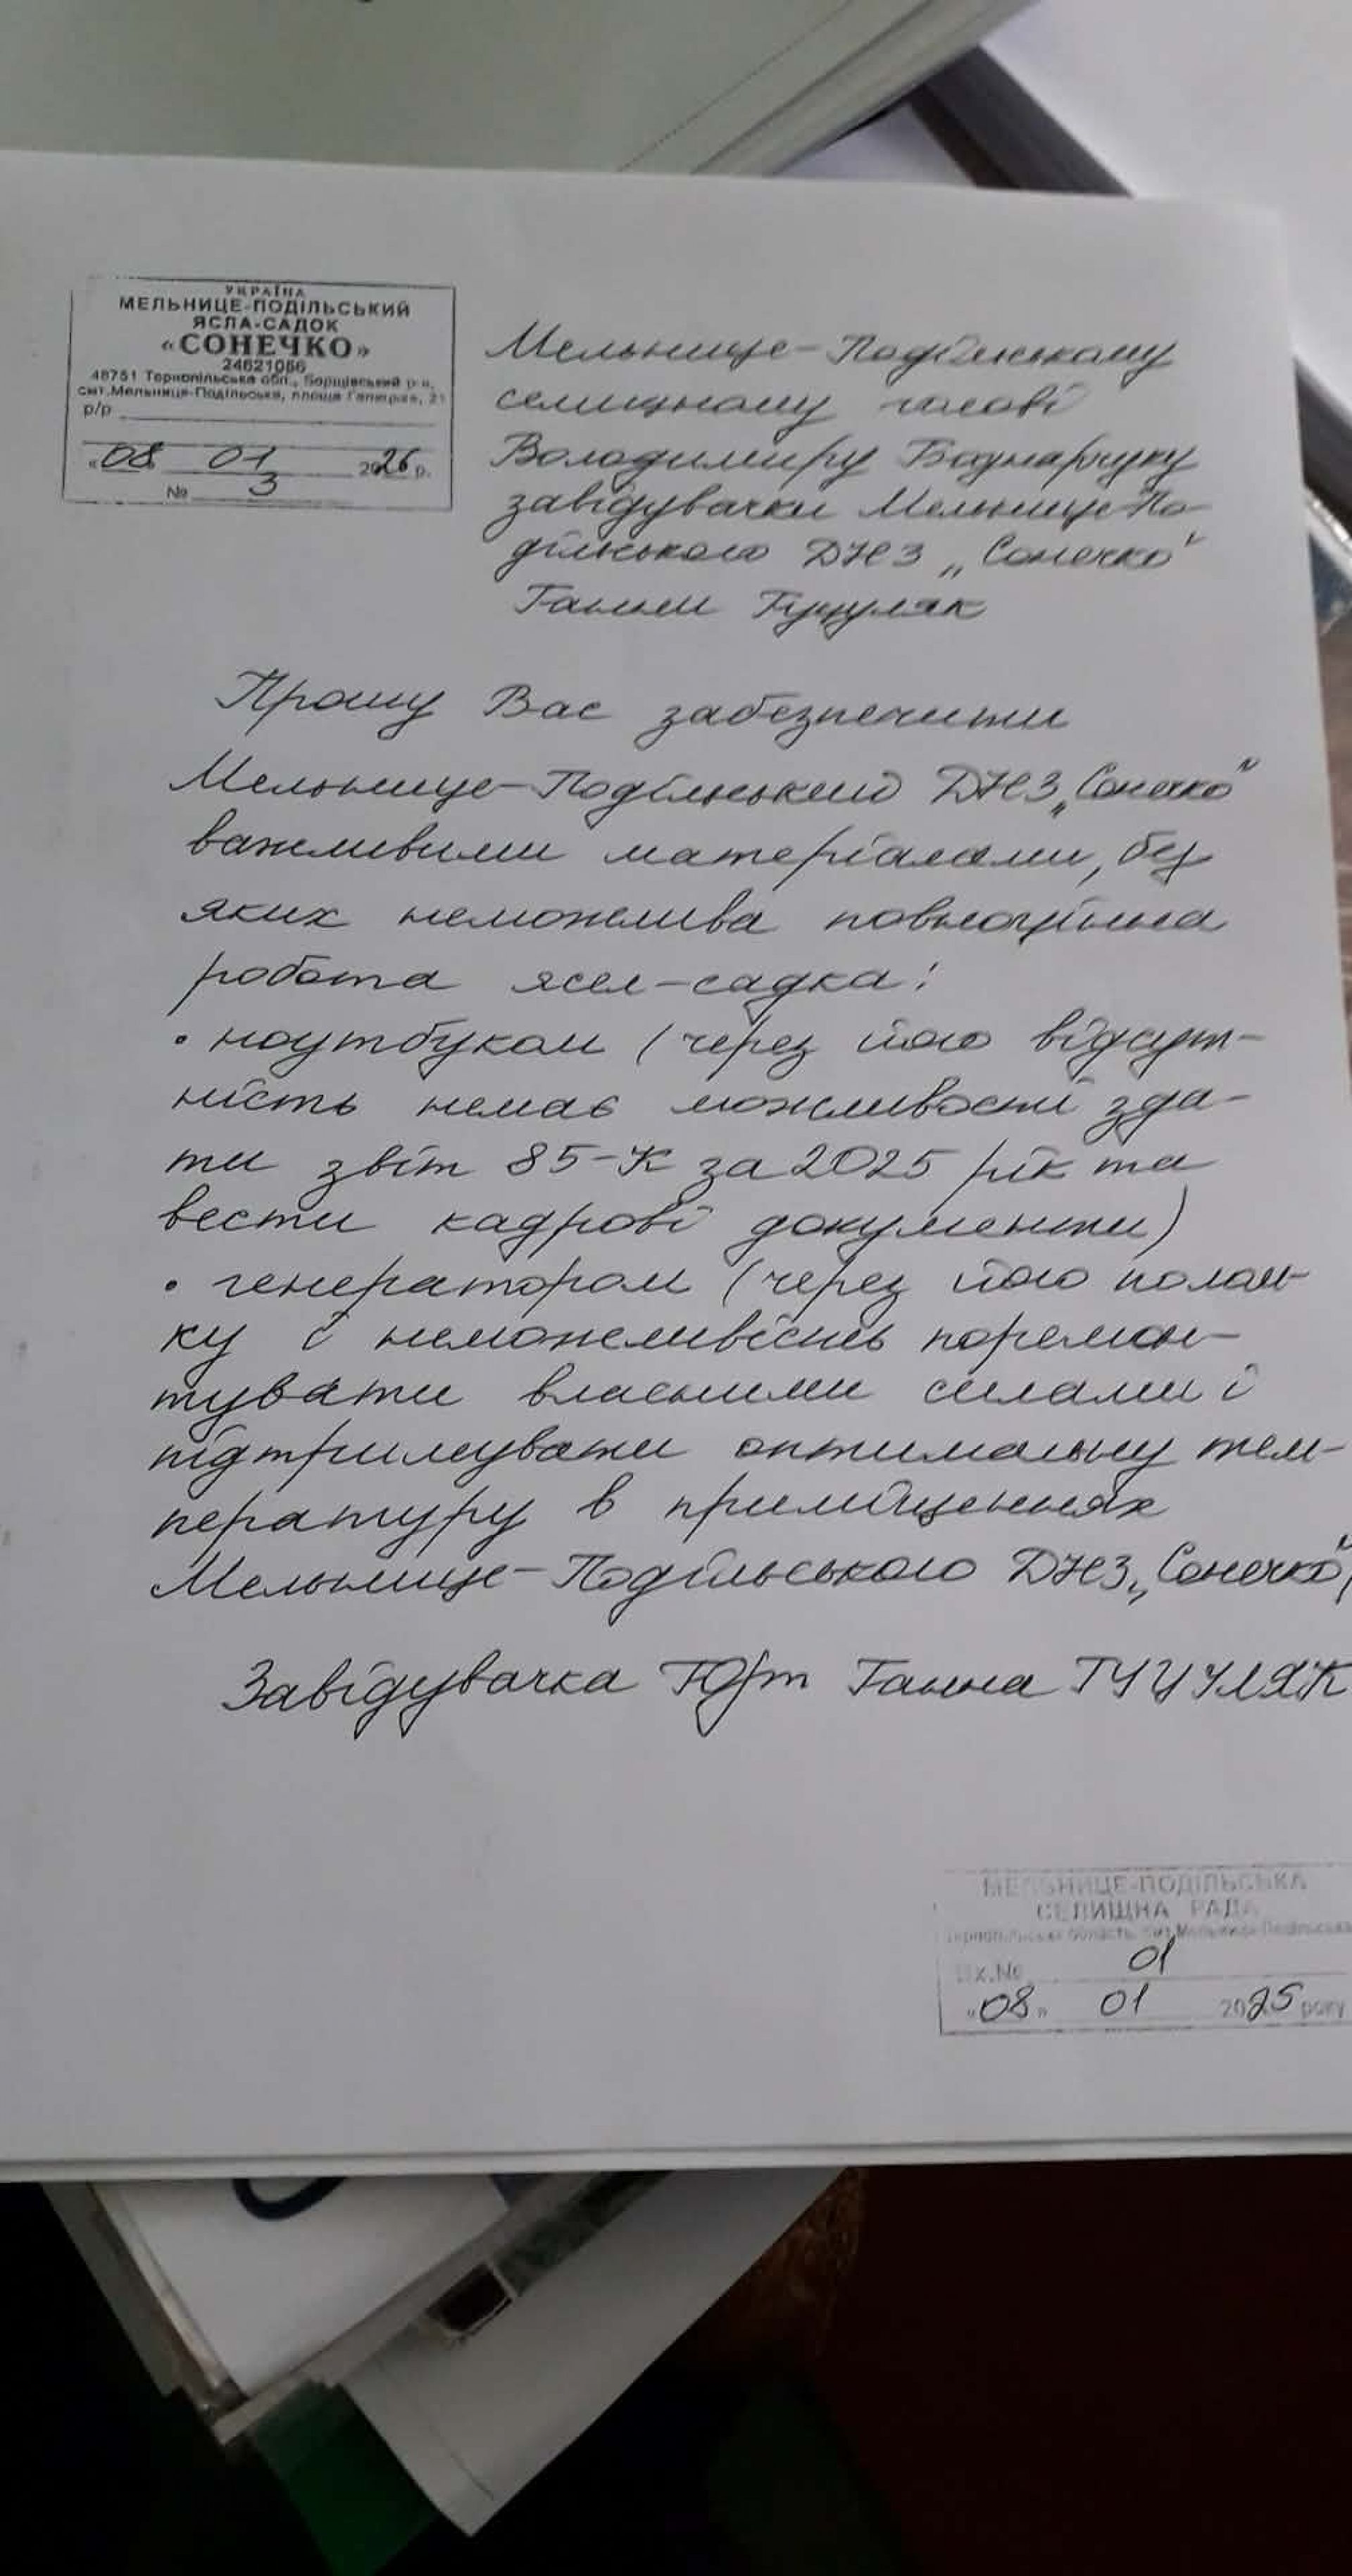 УКРАЇНА
МЕЛЬНИЦЕ-ПОДІЛЬСЬКИЙ
ЯСЛА-САДОК
«СОНЕЧКО»
24621056
48751 Тернопільська обл., Борщівський р-н,
смт.Мельниця-Подільська, площа 21
р/р
«08» 01 2026 р.
№ 3
Мельнице-Подільському
селищному голові
Володимиру Боднарчуку
завідувачки Мельнице-По-
дільського ДНЗ „Сонечко"
Ганни Гуцуляк
Прошу Вас забезпечити
Мельнице-Подільський ДНЗ „Сонечко"
важливими матеріалами, без
яких неможлива повноцінна
робота ясел-садка:
• ноутбуком (через його відсут-
ність немає можливості зда-
ти звіт 85-К за 2025 рік та
вести кадрові документи)
• генератором (через його полом-
ку і неможливість поремон-
тувати власними силами і
підтримувати оптимальну тем-
пературу в приміщеннях
Мельнице-Подільського ДНЗ „Сонечко")
Завідувачка Ганна ГУЦУЛЯК
МЕЛЬНИЦЕ-ПОДІЛЬСЬКА
СЕЛИЩНА РАДА
Тернопільська область, смт.Мельниця-Подільська
Вх.№ 01
«08» 01 2025 року